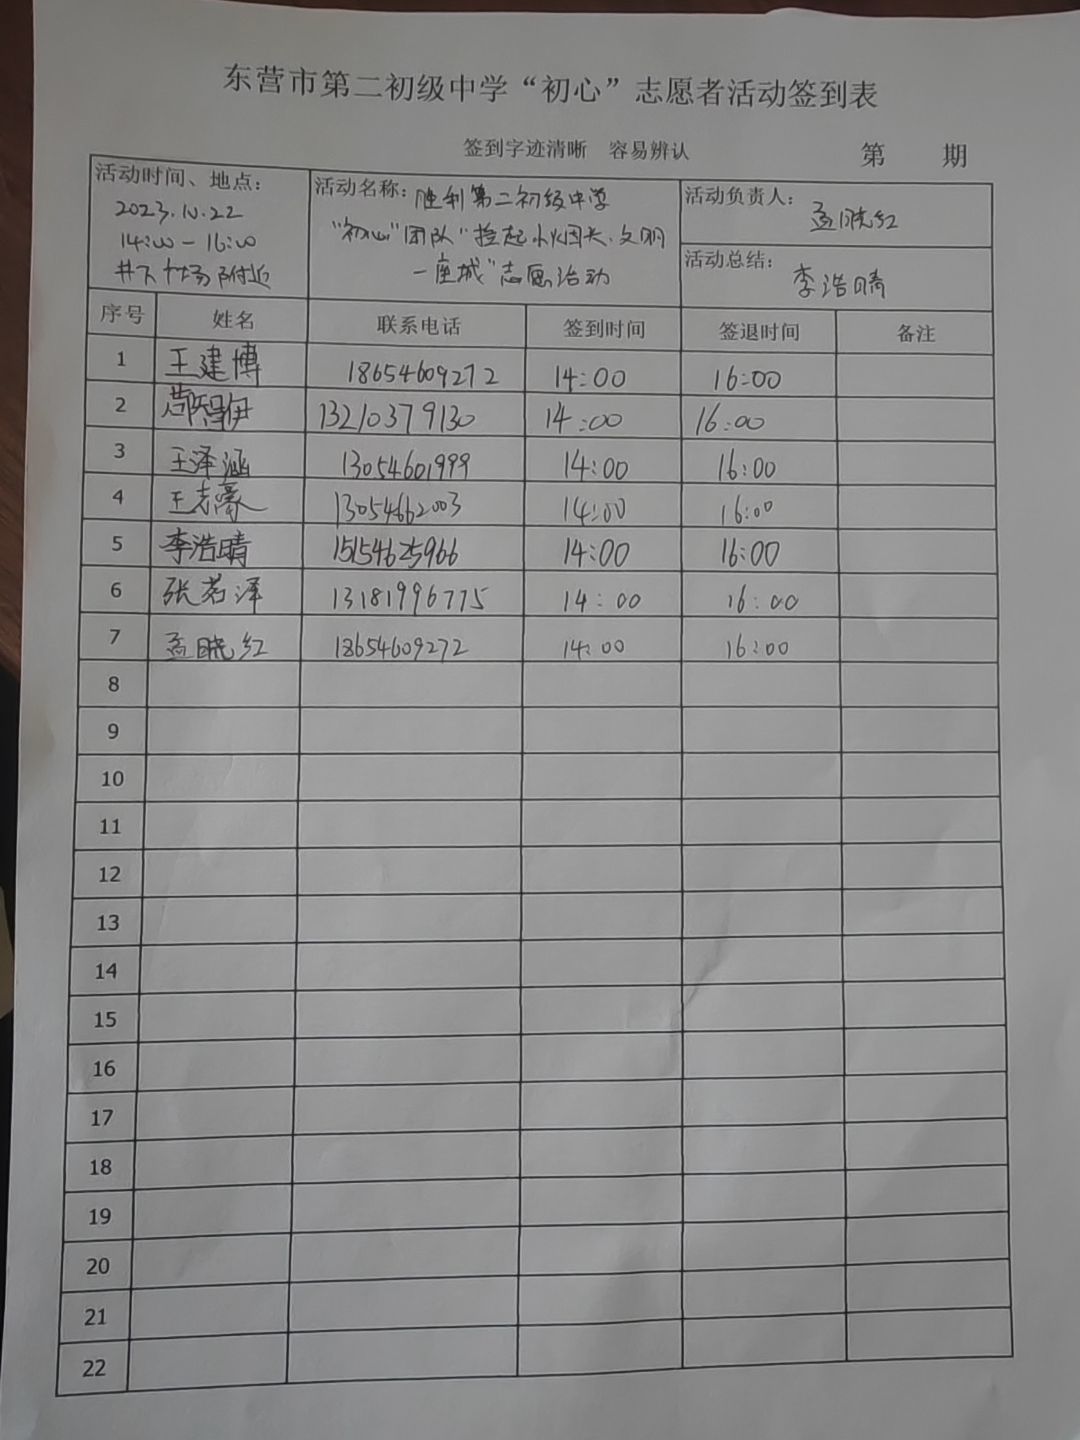 东营市第二初级中学“初心”志愿者活动签到表
签到字迹清晰 容易辨认
第 期
活动时间、地点：
2023.10.22
14:00-16:00
井下广场附近
活动名称：胜利第二初级中学
“初心”团队“捡起小烟头、文明
一座城”志愿活动
活动负责人：
孟晓红
活动总结：
李浩晴
序号 姓名 联系电话 签到时间 签退时间 备注
1 王建博 18654609272 14:00 16:00
2 智伊 13210379130 14:00 16:00
3 王泽涵 13054601999 14:00 16:00
4 王志豪 13054662003 14:00 16:00
5 李浩晴 15154625966 14:00 16:00
6 张若泽 13181996775 14:00 16:00
7 孟晓红 18654609272 14:00 16:00
8
9
10
11
12
13
14
15
16
17
18
19
20
21
22